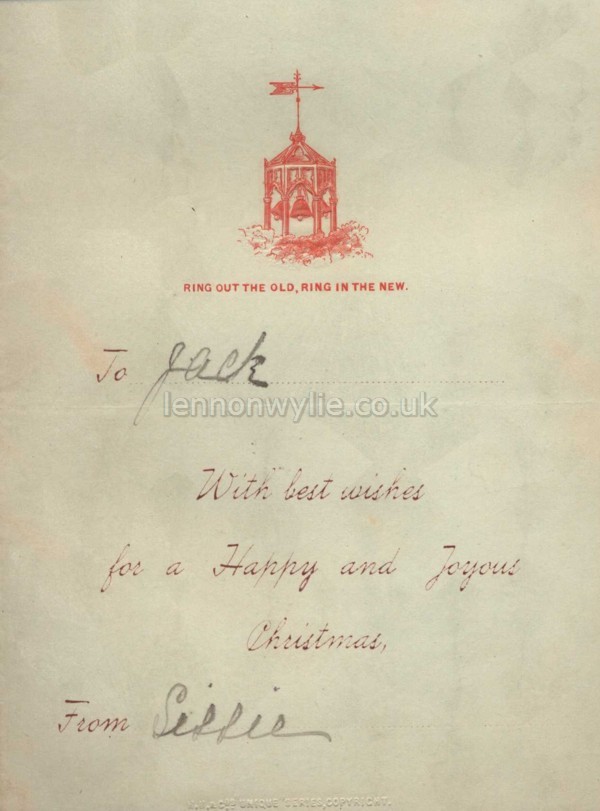 RING OUT THE OLD, RING IN THE NEW.
To Jack
lennonwylie.co.uk
With best wishes
for a Happy and Joyous
Christmas,
From Sissie
"UNIQUE" SERIES, COPYRIGHT.